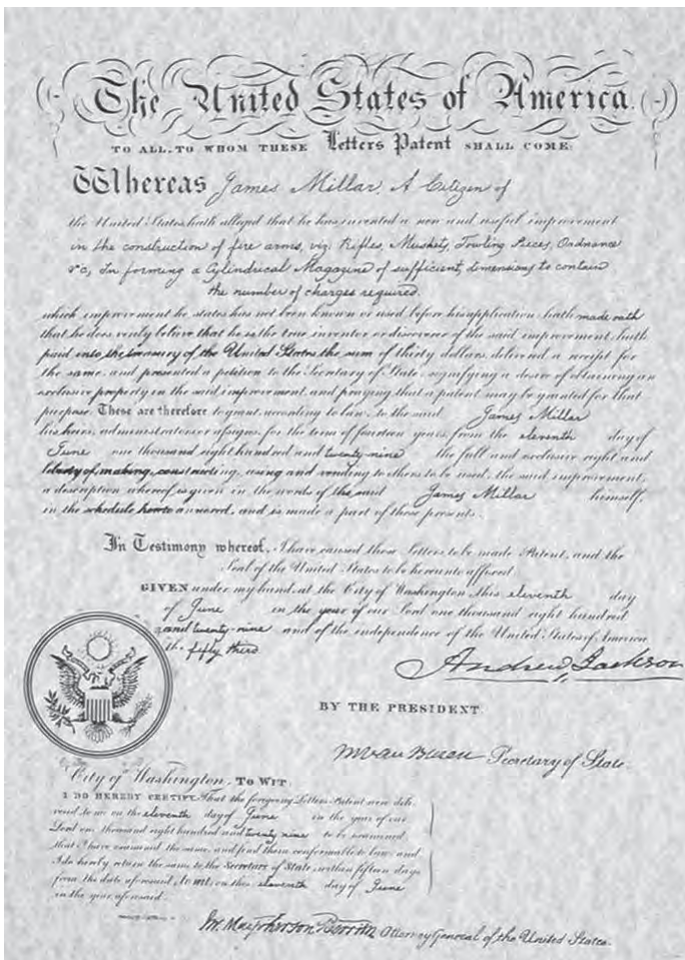 The United States of America.
TO ALL, TO WHOM THESE Letters Patent SHALL COME:
Whereas James Millar, A Citizen of
the United States hath alleged that he has invented a new and useful improvement
in the construction of fire arms, viz. Rifles, Muskets, Fowling Pieces, Ordnance
&c, In forming a Cylindrical Magazine of sufficient dimensions to contain
the number of charges required.
which improvement he states has not been known or used before his application hath made oath
that he does verily believe that he is the true inventor or discoverer of the said improvement, hath
paid into the treasury of the United States the sum of thirty dollars, delivered a receipt for
the same, and presented a petition to the Secretary of State, signifying a desire of obtaining an
exclusive property in the said improvement, and praying that a patent may be granted for that
purpose. These are therefore to grant, according to law, to the said James Millar
his heirs, administrators or assigns, for the term of fourteen years, from the eleventh day of
June one thousand eight hundred and twenty nine the full and exclusive right and
liberty of making, constructing, using and vending to others to be used, the said improvement,
a description whereof is given in the words of the said James Millar himself,
in the schedule hereto annexed, and is made a part of these presents.
In Testimony whereof, I have caused these Letters to be made Patent, and the
Seal of the United States to be hereunto affixed.
GIVEN under my hand, at the City of Washington this eleventh day
of June in the year of our Lord one thousand eight hundred
and twenty-nine and of the independence of the United States of America
the fifty third
Andrew Jackson
BY THE PRESIDENT.
M Van Buren Secretary of State.
City of Washington, TO WIT
I DO HEREBY CERTIFY, That the foregoing Letters Patent were deli-
vered to me on the eleventh day of June in the year of our
Lord one thousand eight hundred and twenty nine to be examined,
that I have examined the same, and find them conformable to law, and
I do hereby return the same to the Secretary of State, within fifteen days
from the date aforesaid, to wit, on this eleventh day of June
in the year aforesaid.
Jn. Macpherson Berrien Attorney General of the United States.